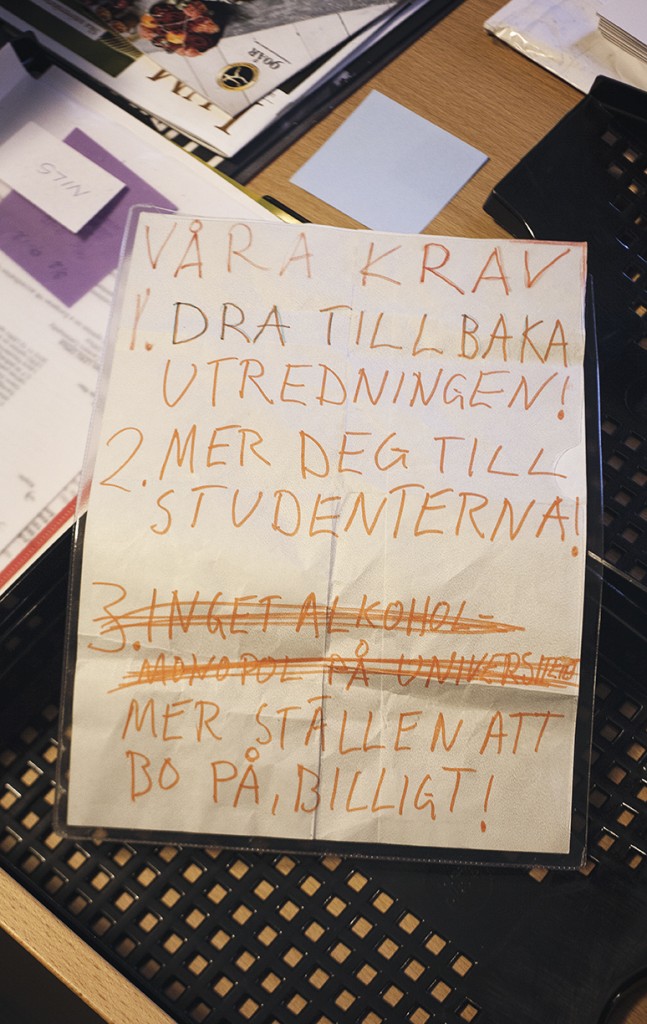 90ÅR
NILS
VÅRA KRAV
1. DRA TILLBAKA
UTREDNINGEN!
2. MER DEG TILL
STUDENTERNA!
3. INGET ALKOHOL-
MONOPOL PÅ UNIVERSITETET
MER STÄLLEN ATT
BO PÅ, BILLIGT!